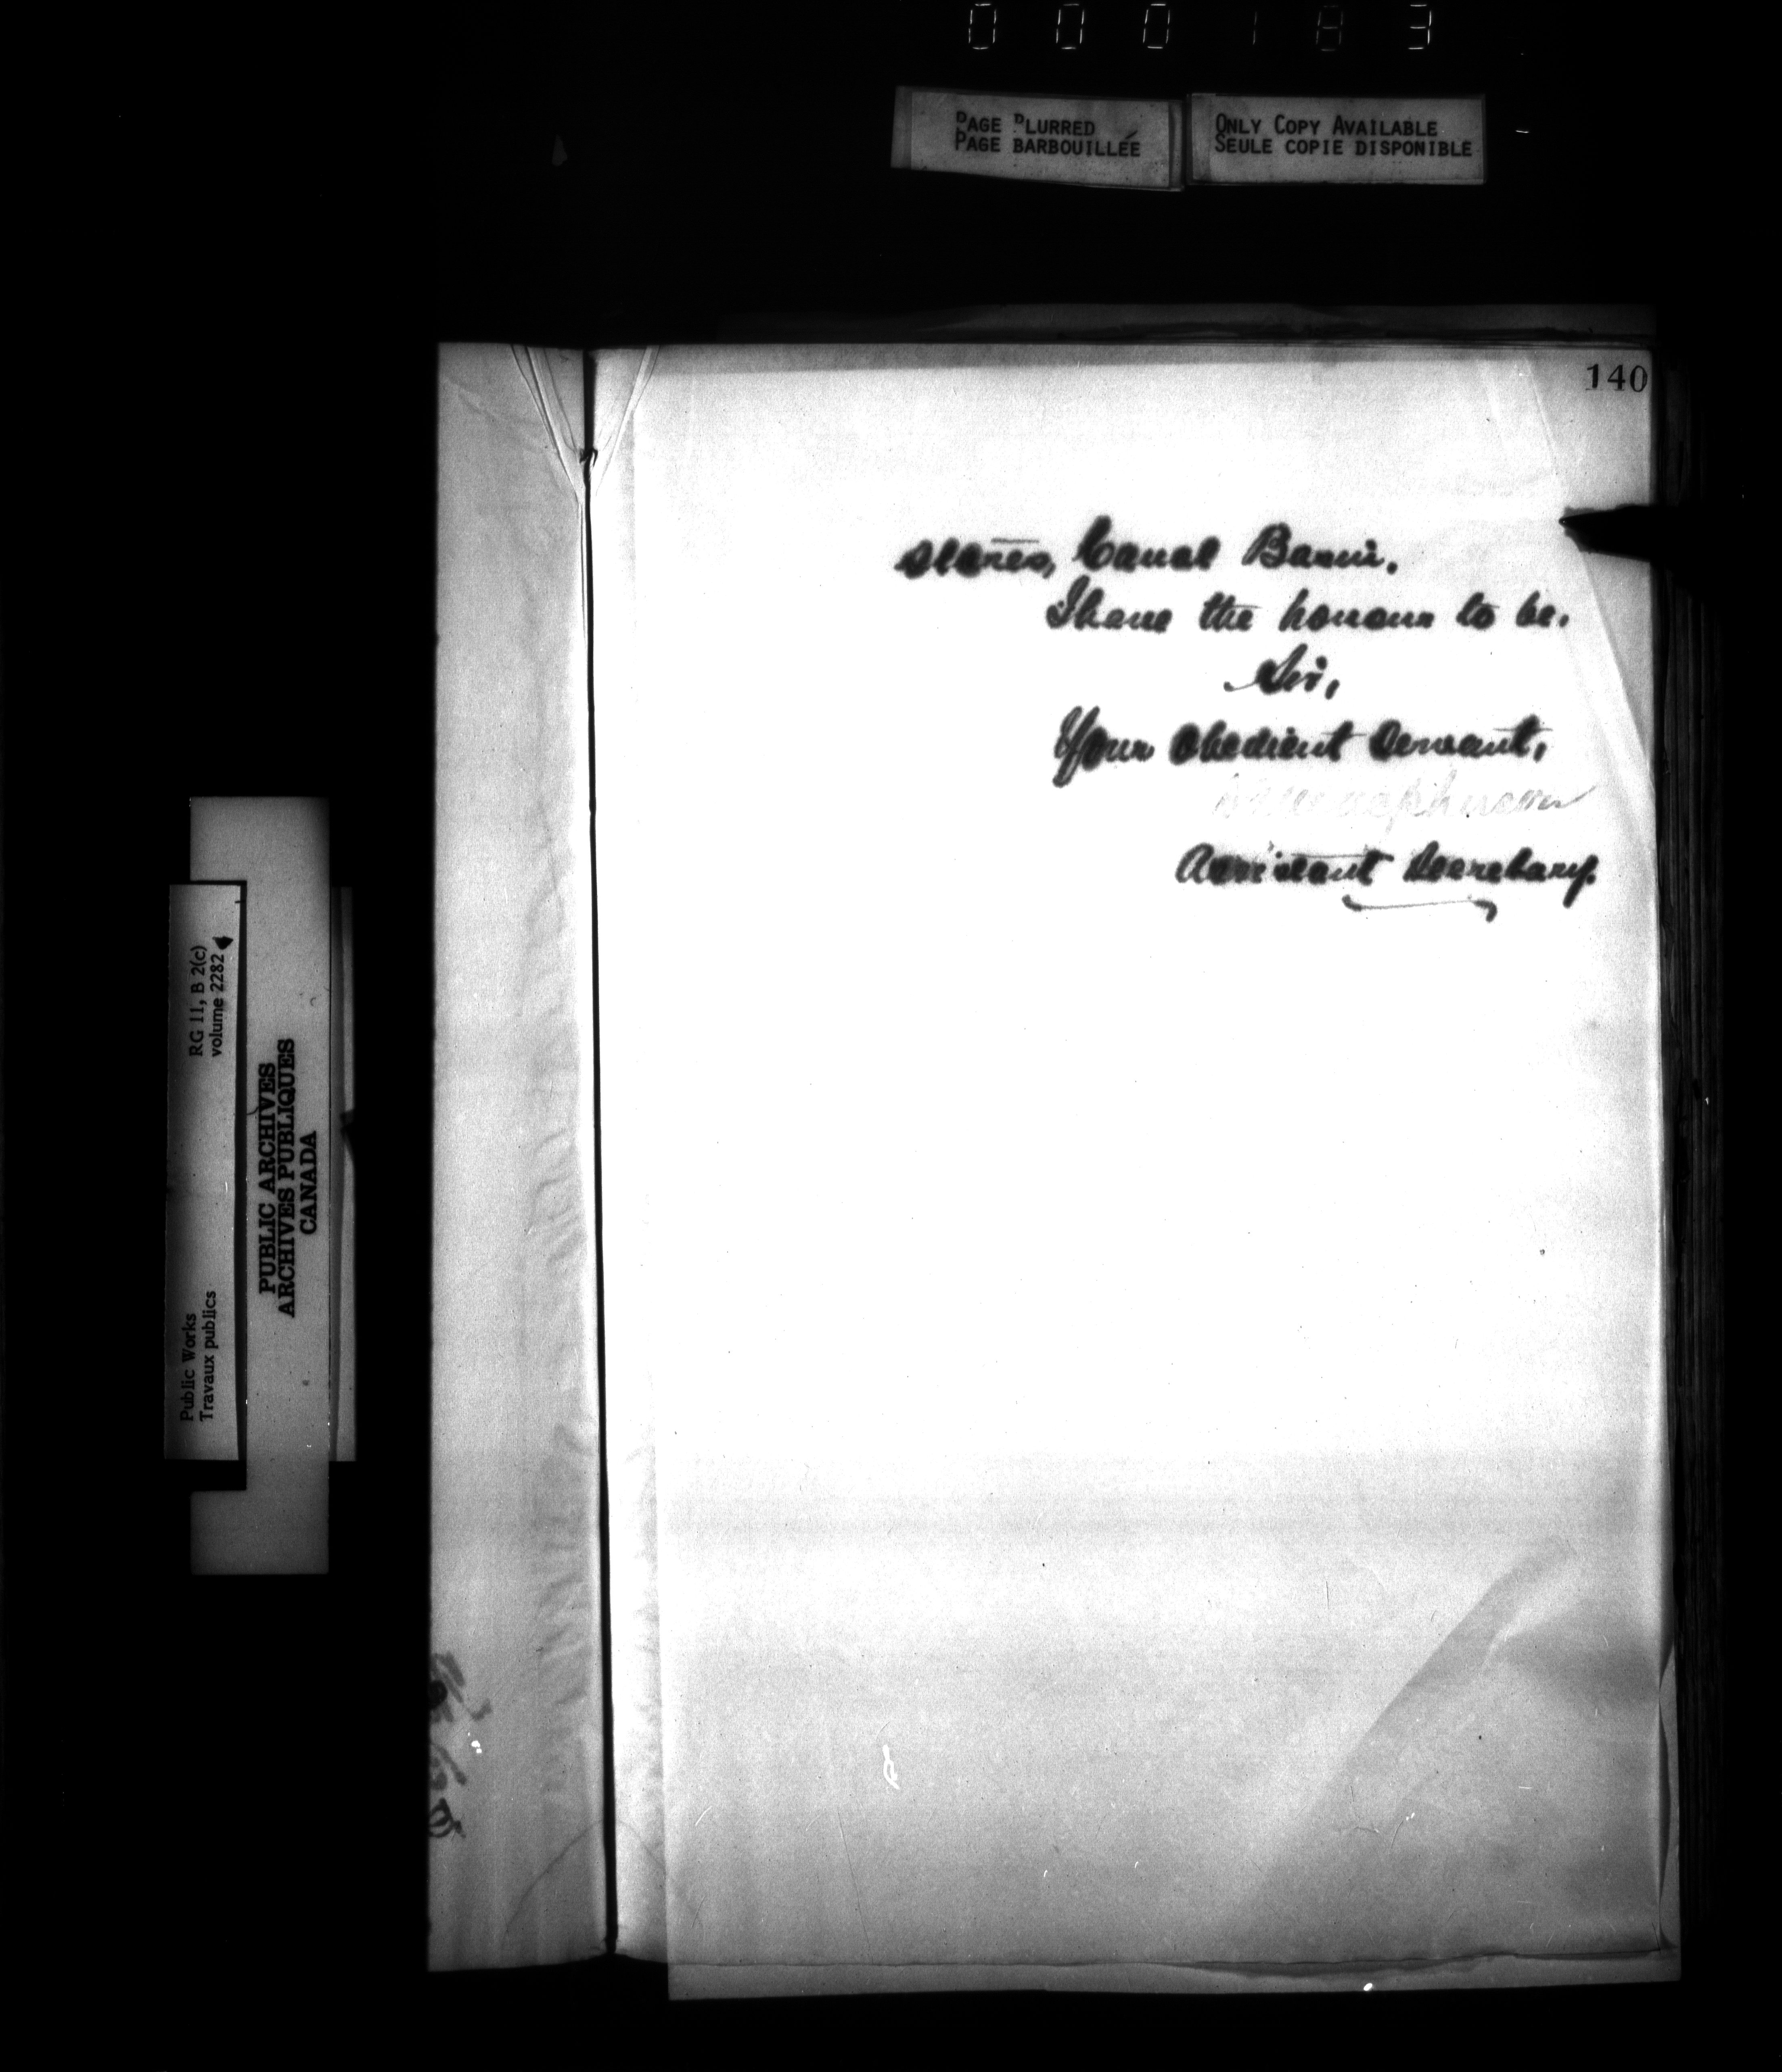 000183
PAGE BLURRED
PAGE BARBOUILLÉE
ONLY COPY AVAILABLE
SEULE COPIE DISPONIBLE
140
stores, Canal Basin.
I have the honour to be,
Sir,
Your obedient Servant,
Assistant Secretary.
RG 11, B 2(c)
volume 2282
Public Works
Travaux publics
PUBLIC ARCHIVES
ARCHIVES PUBLIQUES
CANADA